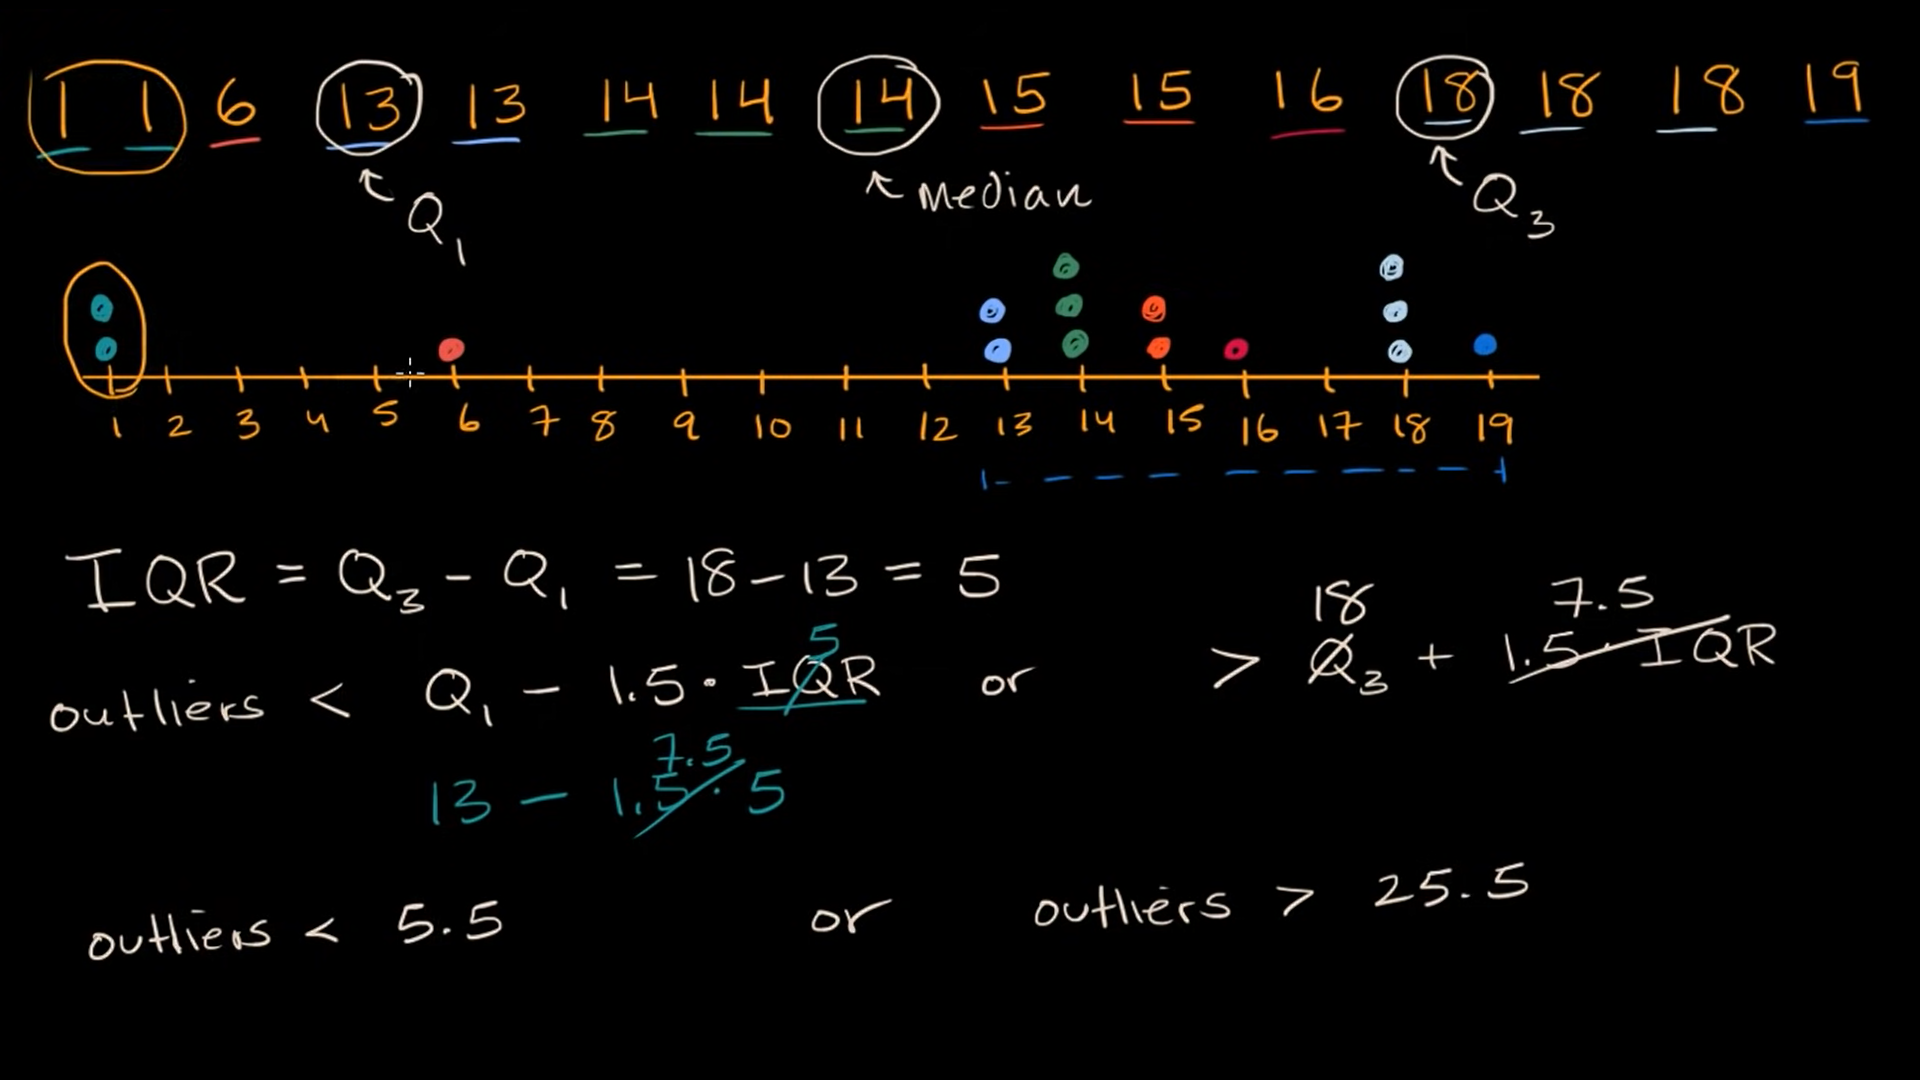 1 1 6 13 13 14 14 14 15 15 16 18 18 18 19
Q1 Median Q3
1 2 3 4 5 6 7 8 9 10 11 12 13 14 15 16 17 18 19
IQR = Q3 - Q1 = 18 - 13 = 5
5 18 7.5
outliers < Q1 - 1.5 · IQR or > Q3 + 1.5 · IQR
7.5
13 - 1.5 · 5
outliers < 5.5 or outliers > 25.5